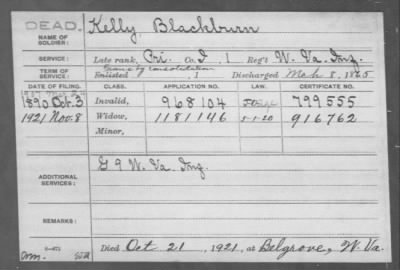 DEAD.
NAME OF SOLDIER:
Kelly, Blackburn
SERVICE:
Late rank, Pri. Co. I, 1 Reg't W. Va. Inf.
TERM OF SERVICE:
Trans by consolidation
Enlisted , 1 Discharged Mch 8, 1865
DATE OF FILING. CLASS. APPLICATION NO. LAW. CERTIFICATE NO.
1890 Oct. 3 Invalid, 968104 799555
1921 Nov. 8 Widow, 1181146 5-1-20 916762
Minor,
ADDITIONAL SERVICES:
G 9 W. Va. Inf.
REMARKS:
Died Oct 21, 1921, at Belgrove, W. Va.